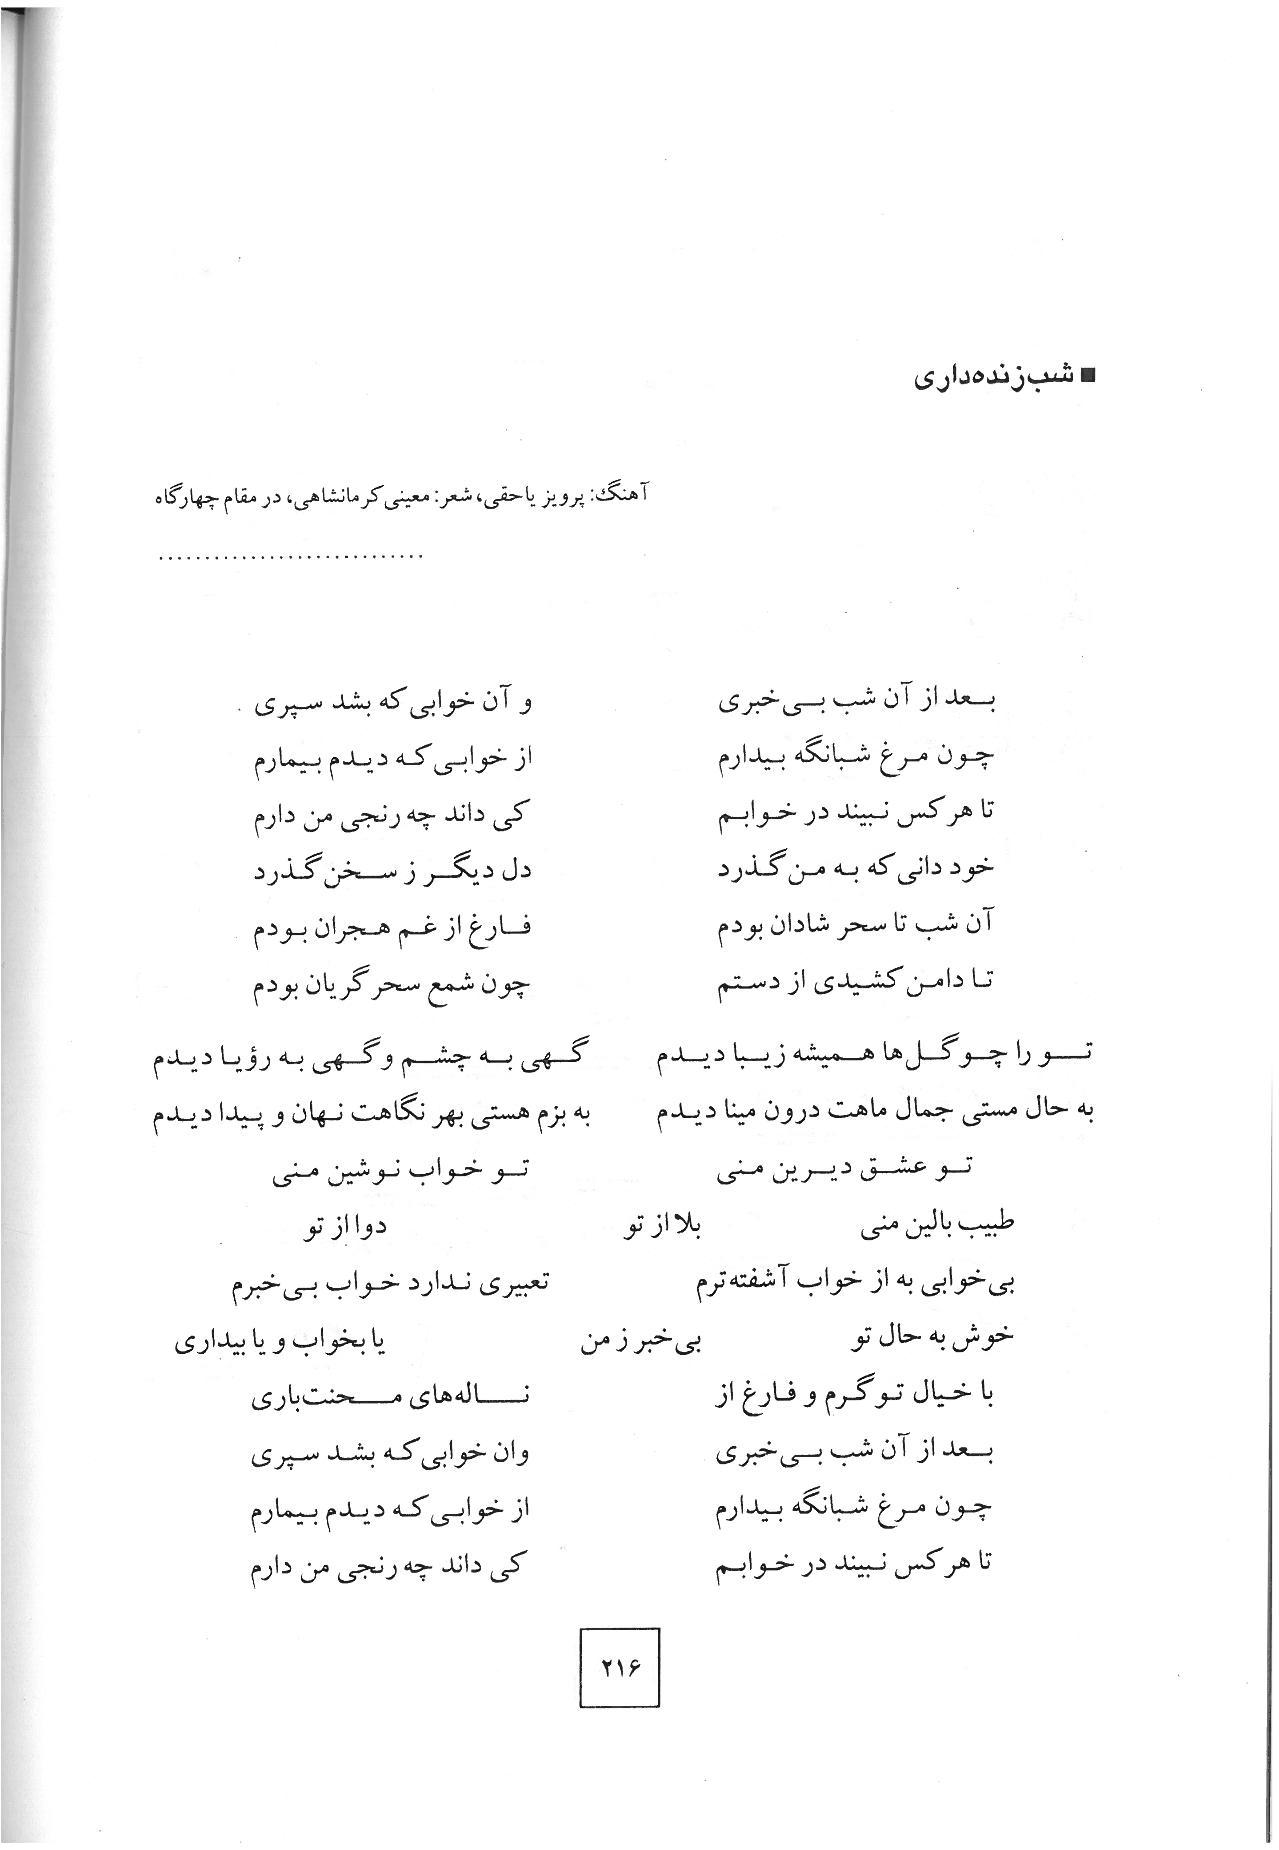 ■ شب‌زنده‌داری
آهنگ: پرویز یاحقی، شعر: معینی کرمانشاهی، در مقام چهارگاه
............................
بعد از آن شب بی‌خبری و آن خوابی که بشد سپری
چون مرغ شبانگه بیدارم از خوابی که دیدم بیمارم
تا هر کس نبیند در خوابم کی داند چه رنجی من دارم
خود دانی که به من گذرد دل دیگر ز سخن گذرد
آن شب تا سحر شادان بودم فارغ از غم هجران بودم
تا دامن کشیدی از دستم چون شمع سحر گریان بودم
تو را چو گل‌ها همیشه زیبا دیدم گهی به چشم و گهی به رؤیا دیدم
به حال مستی جمال ماهت درون مینا دیدم به بزم هستی بهر نگاهت نهان و پیدا دیدم
تو عشق دیرین منی تو خواب نوشین منی
طبیب بالین منی بلا از تو دوا از تو
بی‌خوابی به از خواب آشفته‌ترم تعبیری ندارد خواب بی‌خبرم
خوش به حال تو بی‌خبر ز من یا بخواب و یا بیداری
با خیال تو گرم و فارغ از ناله‌های محنت‌باری
بعد از آن شب بی‌خبری وان خوابی که بشد سپری
چون مرغ شبانگه بیدارم از خوابی که دیدم بیمارم
تا هر کس نبیند در خوابم کی داند چه رنجی من دارم
۲۱۶